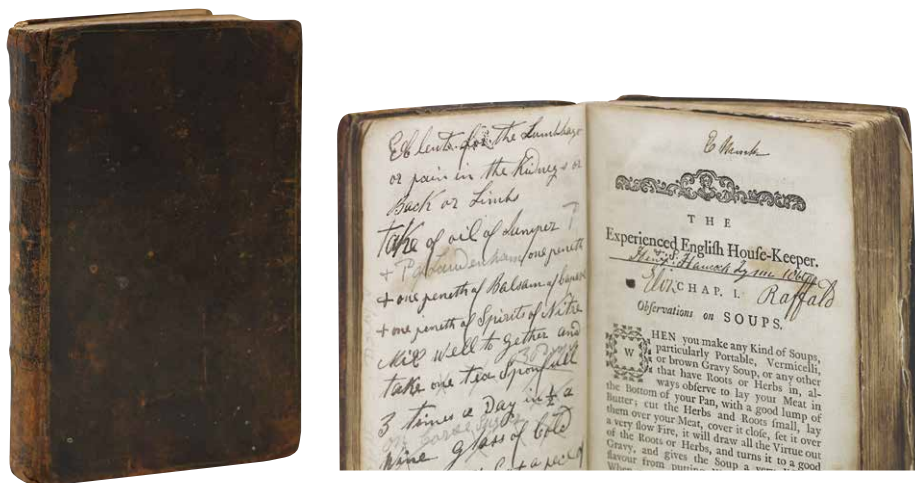 Exlent for the Lumbago
or pain in the Kidneys or
Back or Limbs
take of oil of Juniper
+ Laudenham one peneth
+ one peneth of Balsam of
+ one peneth of Spirits of Nitre
Mix well to gether and
take one tea Spoonfull
3 times a Day in ½ a
Wine glass of Cold
E
THE
Experienced Engliſh Houſe-Keeper.
Eliz. Raffald
CHAP. I.
Obſervations on SOUPS.
WHEN you make any Kind of Soups,
particularly Portable, Vermicelli,
or brown Gravy Soup, or any other
that have Roots or Herbs in, al-
ways obſerve to lay your Meat in
the Bottom of your Pan, with a good lump of
Butter; cut the Herbs and Roots ſmall, lay
them over your Meat, cover it cloſe, ſet it over
a very ſlow Fire, it will draw all the Virtue out
of the Roots or Herbs, and turns it to a good
Gravy, and gives the Soup a very
flavour from putting
When